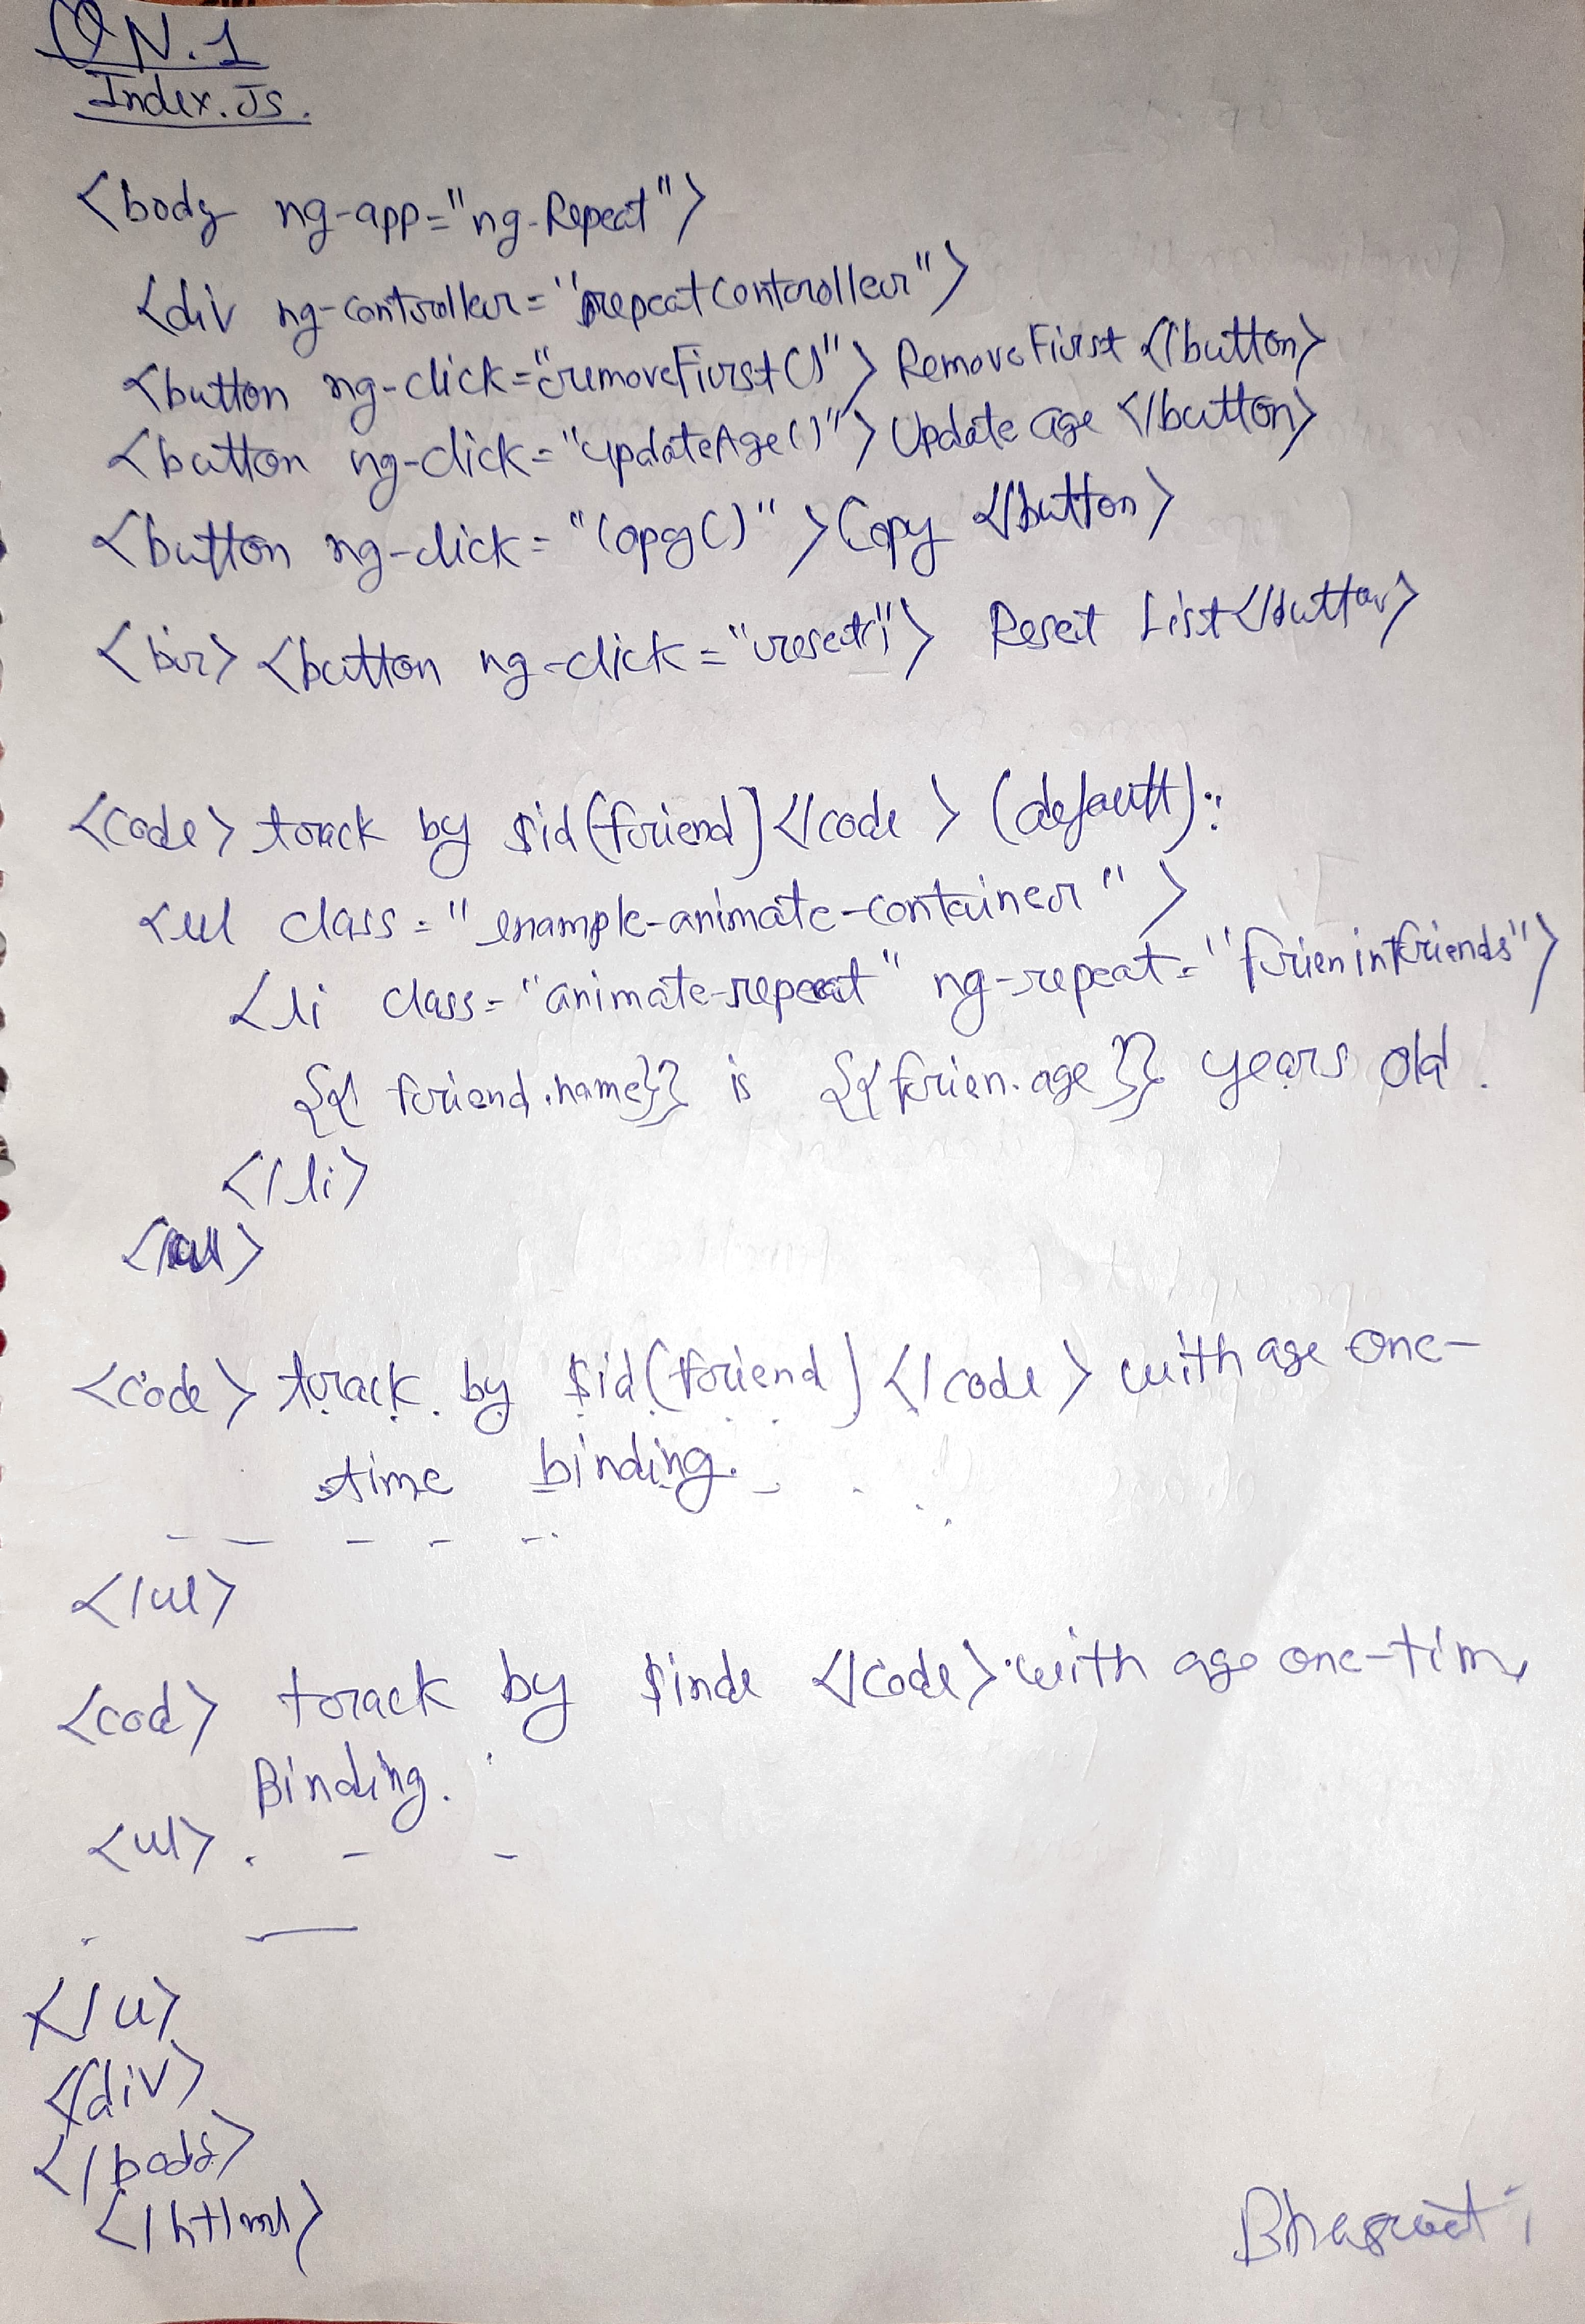 QN.1
Index.Js.
<body ng-app="ng-Repeat">
<div ng-controller="repeatController">
<button ng-click="removeFirst()"> Remove First </button>
<button ng-click="updateAge()"> Update age </button>
<button ng-click="Copy()">Copy </button>
<br> <button ng-click="reset()"> Reset List</button>
<code> track by $id(friend)</code> (default):
<ul class="example-animate-container">
<li class="animate-repeat" ng-repeat="frien in friends">
{{ friend.name}} is {{frien.age}} years old.
</li>
</ul>
<code> track by $id(friend)</code> with age one-
time binding.
</ul>
<cod> track by $inde </code> with age one-tim
Binding.
<ul>. - -
</u>
</div>
</body>
</html>